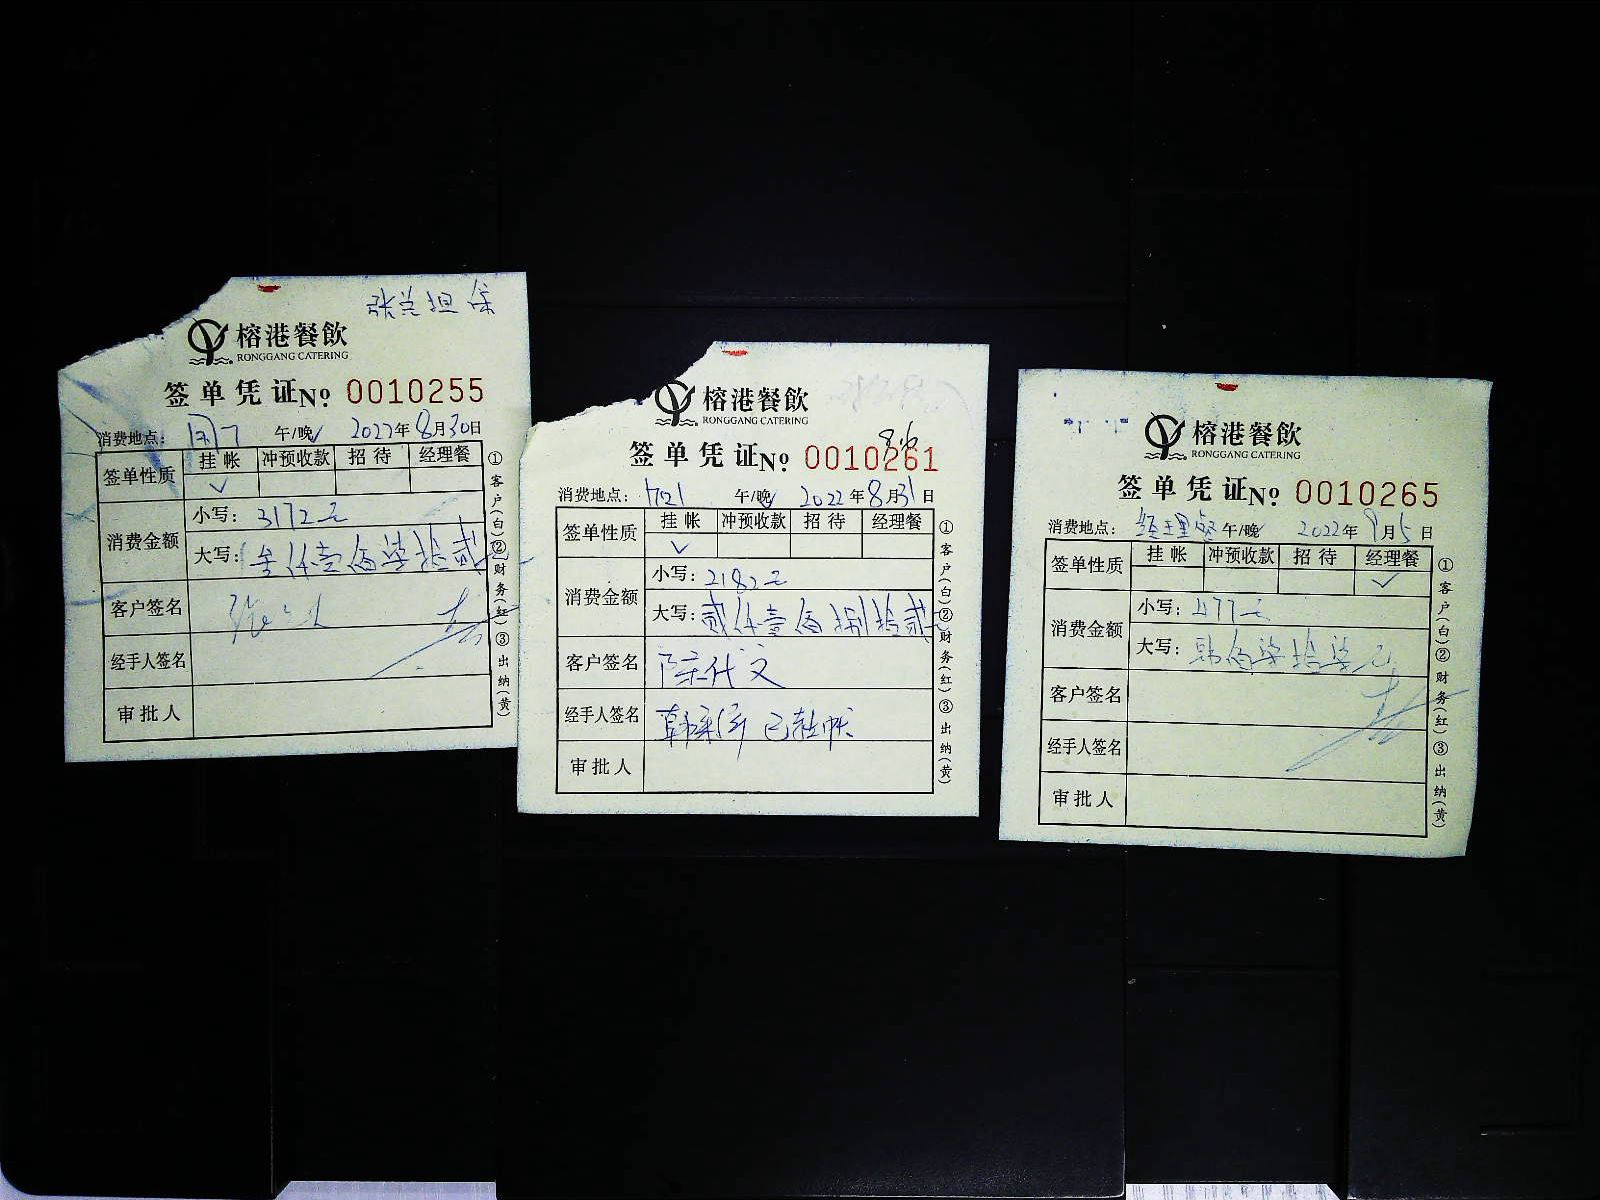 榕港餐飲
RONGGANG CATERING
签单凭证 No 0010255
消费地点: 午/晚 2022年8月30日
签单性质 挂帐 冲预收款 招待 经理餐
✓
消费金额 小写: 3172元
大写: 叁仟壹佰柒拾贰
客户签名
经手人签名
审批人
①客户(白)②财务(红)③出纳(黄)
榕港餐飲
RONGGANG CATERING
签单凭证 No 0010261
消费地点: 午/晚 2022年8月31日
签单性质 挂帐 冲预收款 招待 经理餐
✓
消费金额 小写: 2182元
大写: 贰仟壹佰捌拾贰
客户签名 陈代文
经手人签名 已挂帐
审批人
①客户(白)②财务(红)③出纳(黄)
榕港餐飲
RONGGANG CATERING
签单凭证 No 0010265
消费地点: 经理餐 午/晚 2022年9月5日
签单性质 挂帐 冲预收款 招待 经理餐
✓
消费金额 小写: 477元
大写: 佰柒拾柒元
客户签名
经手人签名
审批人
①客户(白)②财务(红)③出纳(黄)